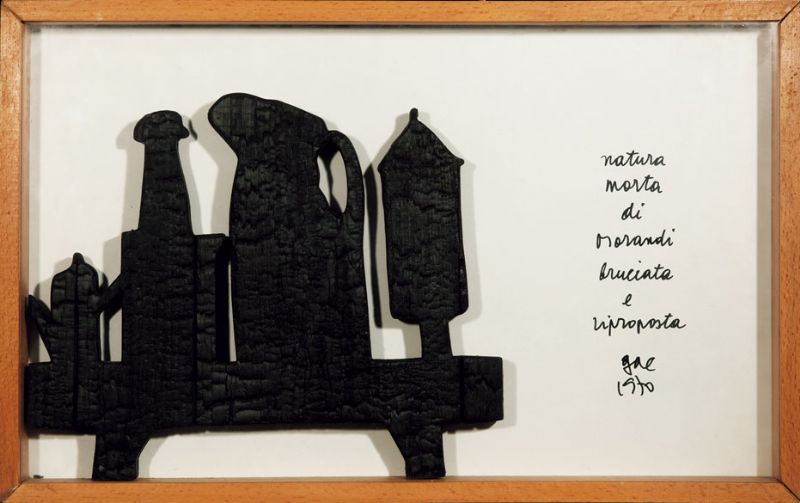 natura
morta
di
morandi
bruciata
e
riproposta
gae
1970